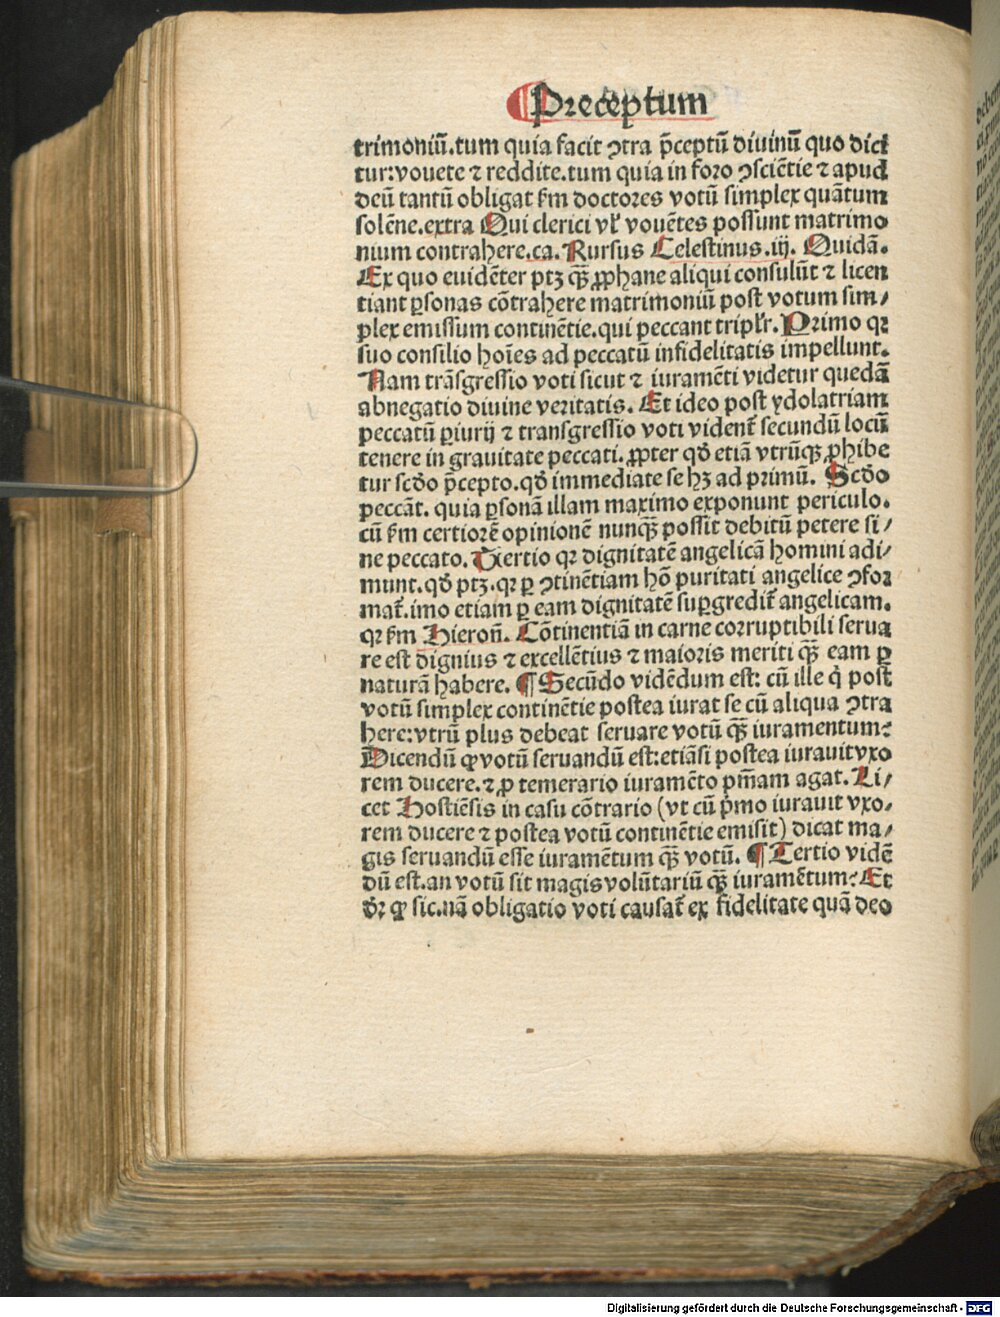 Preceptum
trimoniū.tum quia facit ↄtra p̄ceptū diuinū quo dici
tur:vouete ⁊ reddite.tum quia in foro ↄsciētie ⁊ apud
deū tantū obligat ẜm doctores votū simplex quātum
solēne.extra Qui clerici vl̓ vouētes possunt matrimo
nium contrahere.ca. Rursus Celestinus.iij. Quidā.
Ex quo euidēter ptꝫ qꝫ̄ ꝓphane aliqui consulūt ⁊ licen
tiant ꝑsonas cōtrahere matrimoniū post votum sim/
plex emissum continētie.qui peccant tripl̓r. Primo qꝛ
suo consilio hoīes ad peccatū infidelitatis impellunt.
Nam trāsgressio voti sicut ⁊ iuramēti videtur quedā
abnegatio diuine veritatis. Et ideo post ydolatriam
peccatū ꝑiurij ⁊ transgressio voti vident᷑ secundū locū
tenere in grauitate peccati. ꝓpter qd̓ etiā vtrūqꝫ ꝓhibe
tur scd̓o p̄cepto.qd̓ immediate se hꝫ ad primū. Scd̓o
peccāt. quia ꝑsonā illam maximo exponunt periculo.
cū ẜm certiorē opinionē nunqꝫ̄ possit debitū petere si/
ne peccato. Tertio qꝛ dignitatē angelicā homini adi/
munt.qd̓ ptꝫ.qꝛ ꝑ ↄtinētiam hō puritati angelice ↄfoꝛ
mat᷑.imo etiam ꝑ eam dignitatē suꝑgredit᷑ angelicam.
qꝛ ẜm Hieron̄. Cōtinentiā in carne corruptibili serua
re est dignius ⁊ excellētius ⁊ maioris meriti qꝫ̄ eam ꝑ
naturā habere. ¶ Secūdo vidēdum est: cū ille q̇ post
votū simplex continētie postea iurat se cū aliqua ↄtra
here:vtrū plus debeat seruare votū qꝫ̄ iuramentum:
Dicendū ꝙ votū seruandū est:etiāsi postea iurauit vxo
rem ducere.⁊ ꝓ temerario iuramēto pn̄iam agat. Li/
cet Hostiēsis in casu cōtrario (vt cū p̓mo iurauit vxo/
rem ducere ⁊ postea votū continētie emisit) dicat ma/
gis seruandū esse iuramētum qꝫ̄ votū. ¶ Tertio vidē
dū est.an votū sit magis volūtariū qꝫ̄ iuramētum: Et
dr̄ ꝙ sic.nā obligatio voti causat᷑ ex fidelitate quā deo
Digitalisierung gefördert durch die Deutsche Forschungsgemeinschaft - DFG